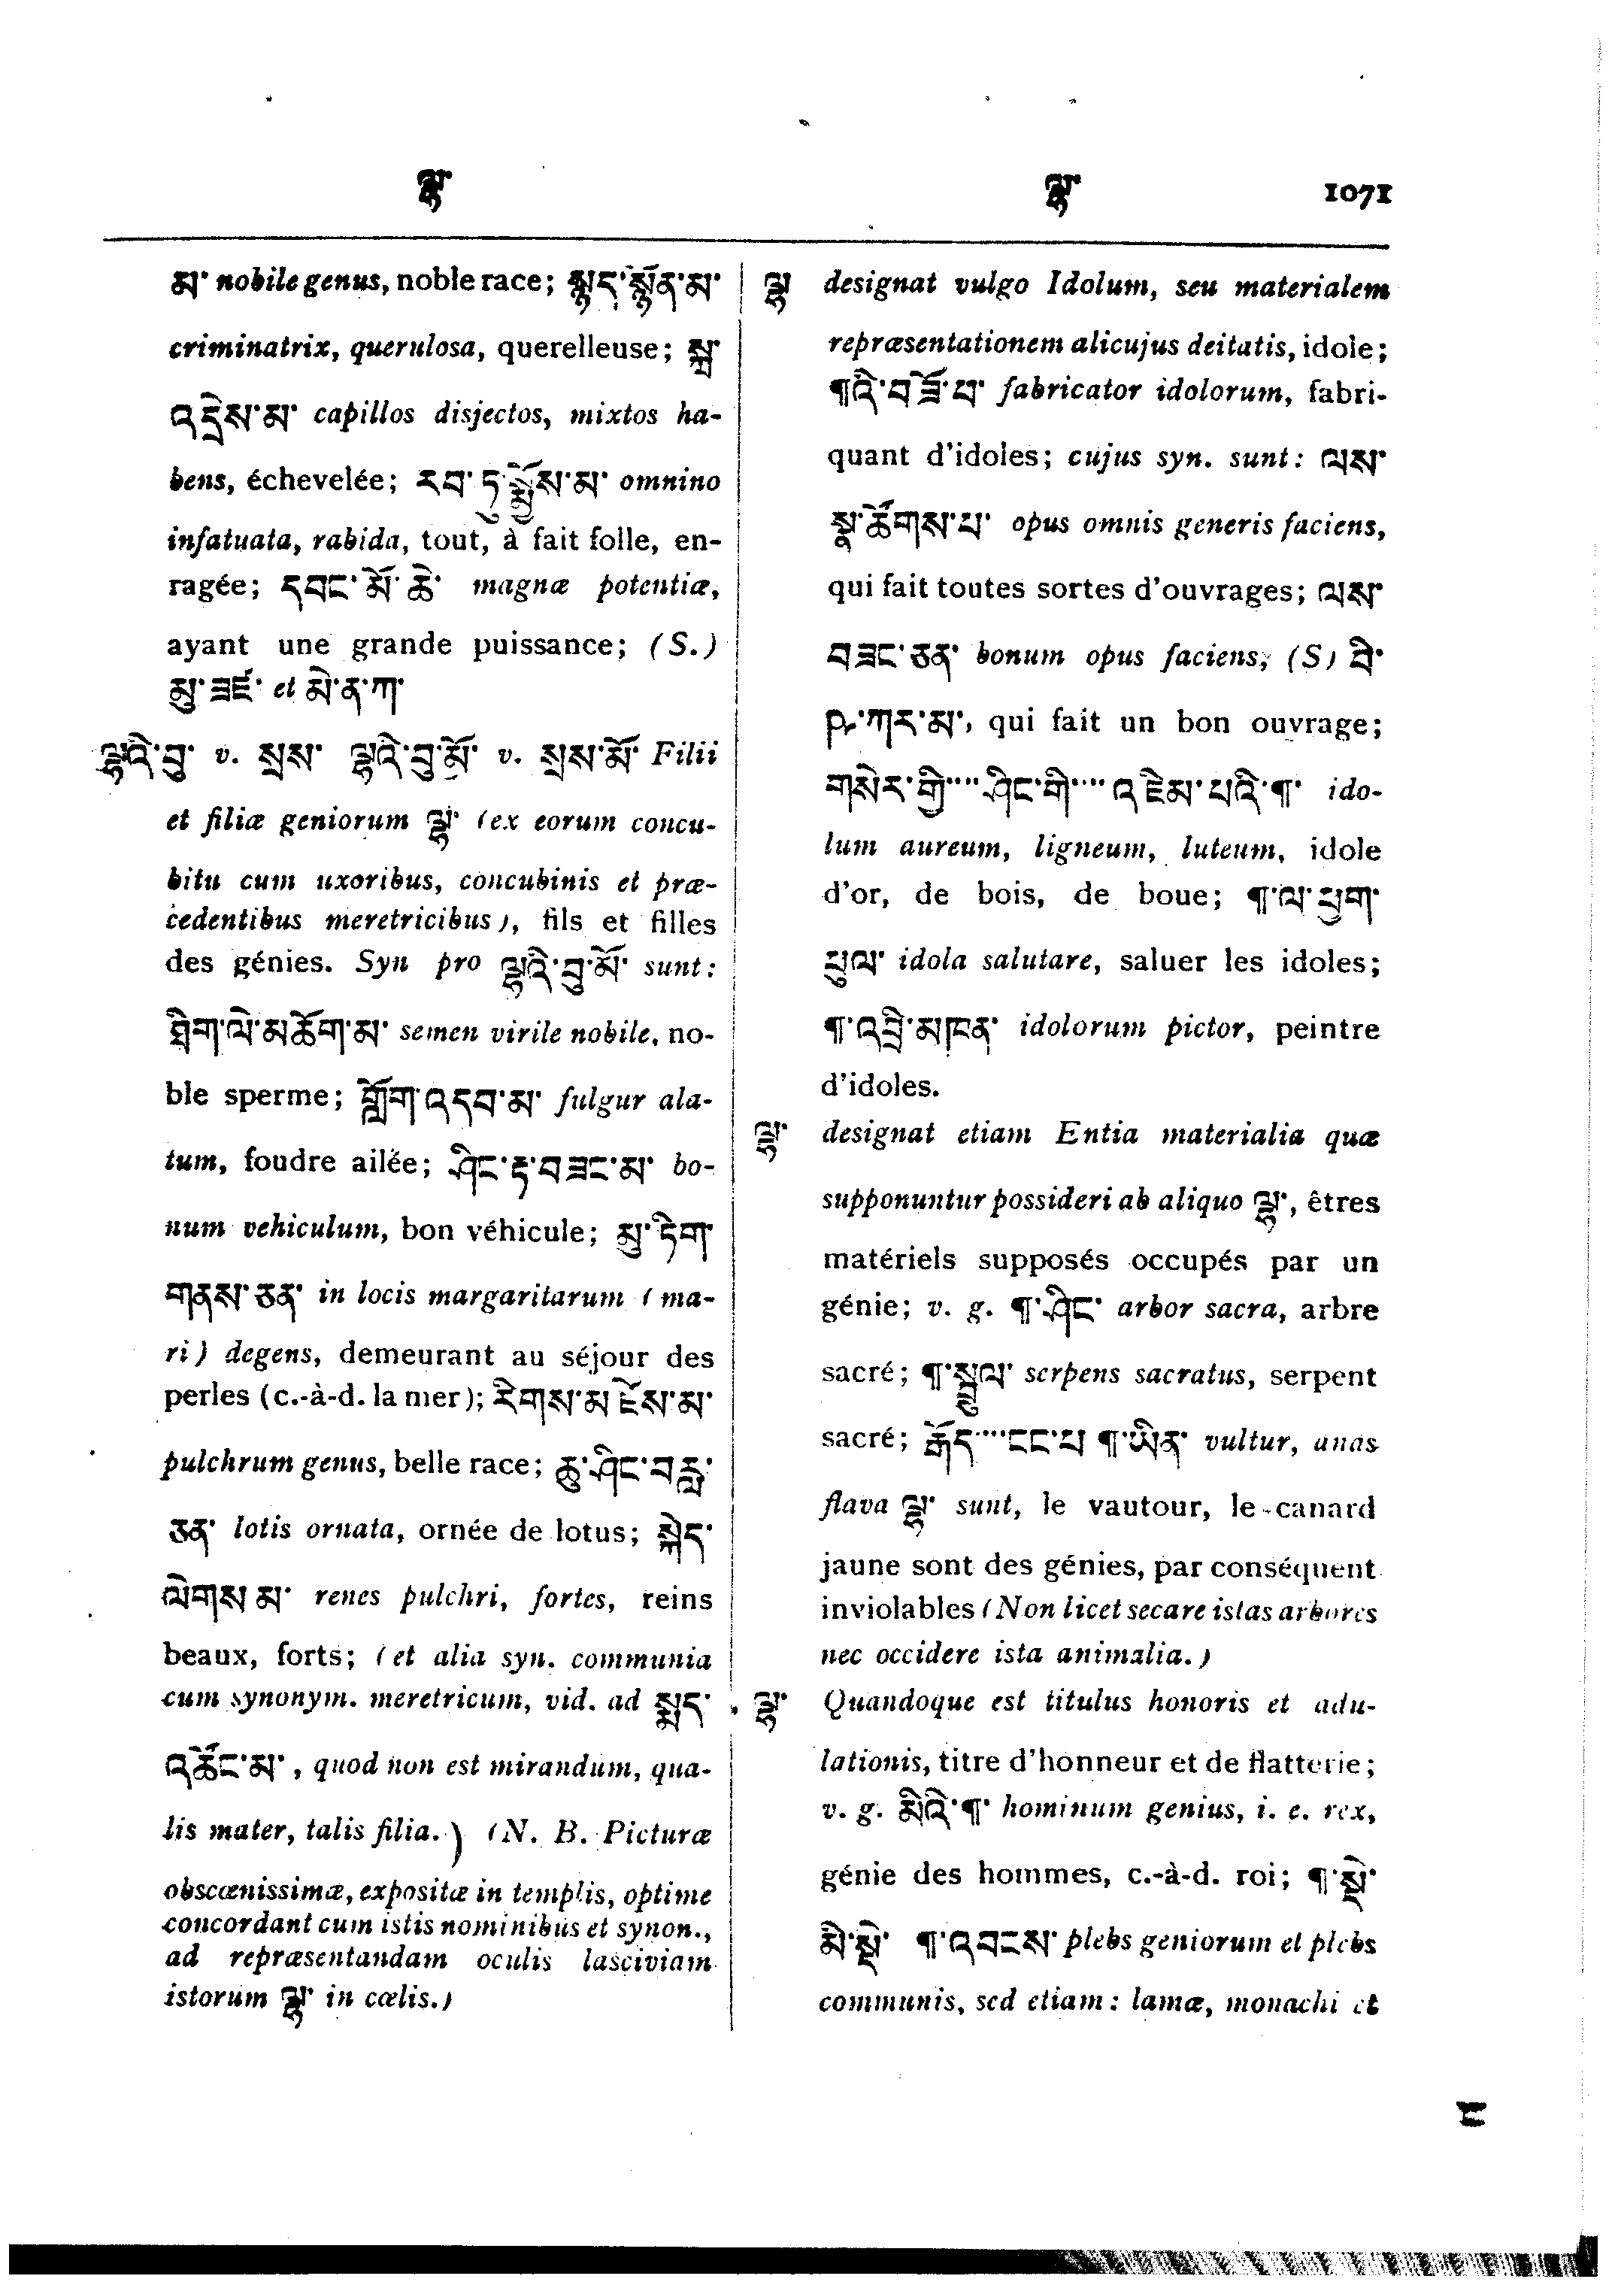 ལྷ་
ལྷ་ 1071
མ་ nobile genus, noble race; སྨད་སྨོན་མ་
criminatrix, querulosa, querelleuse; སྐྲ་
འདྲེས་མ་ capillos disjectos, mixtos ha-
bens, échevelée; རབ་ཏུ་སྨྱོས་མ་ omnino
infatuata, rabida, tout, à fait folle, en-
ragée; དབང་མོ་ཆེ་ magnæ potentiæ,
ayant une grande puissance; (S.)
མུ་ཟཛ་ et མེ་ན་ཀ་
ལྷའི་བུ་ v. སྲས་ ལྷའི་བུ་མོ་ v. སྲས་མོ་ Filii
et filiæ geniorum ལྷ་ (ex eorum concu-
bitu cum uxoribus, concubinis et præ-
cedentibus meretricibus), fils et filles
des génies. Syn pro ལྷའི་བུ་མོ་ sunt:
ཐིག་ལེ་མཆོག་མ་ semen virile nobile, no-
ble sperme; གློག་འདབ་མ་ fulgur ala-
tum, foudre ailée; ཤིང་རྟ་བཟང་མ་ bo-
num vehiculum, bon véhicule; མུ་ཏིག་
གནས་ཅན་ in locis margaritarum (ma-
ri) degens, demeurant au séjour des
perles (c.-à-d. la mer); རིགས་མཛེས་མ་
pulchrum genus, belle race; ཆུ་ཤིང་བརླ་
ཅན་ lotis ornata, ornée de lotus; སྐེད་
ལེགས་མ་ renes pulchri, fortes, reins
beaux, forts; (et alia syn. communia
cum synonym. meretricum, vid. ad སྨད་
འཚོང་མ་, quod non est mirandum, qua-
lis mater, talis filia.) (N. B. Picturæ
obscœnissimæ, expositæ in templis, optime
concordant cum istis nominibus et synon.,
ad repræsentandam oculis lasciviam
istorum ལྷ་ in cœlis.)
ལྷ designat vulgo Idolum, seu materialem
repræsentationem alicujus deitatis, idole;
¶འི་བཟོ་པ་ fabricator idolorum, fabri-
quant d'idoles; cujus syn. sunt: ལས་
སྣ་ཚོགས་པ་ opus omnis generis faciens,
qui fait toutes sortes d'ouvrages; ལས་
བཟང་ཅན་ bonum opus faciens, (S) བི་
ཤྭ་ཀར་མ་, qui fait un bon ouvrage;
གསེར་གྱི་····ཤིང་གི་····འཇིམ་པའི་¶་ ido-
lum aureum, ligneum, luteum, idole
d'or, de bois, de boue; ¶་ལ་ཕྱག་
ཕུལ་ idola salutare, saluer les idoles;
¶་འབྲི་མཁན་ idolorum pictor, peintre
d'idoles.
ལྷ་ designat etiam Entia materialia quæ
supponuntur possideri ab aliquo ལྷ་, êtres
matériels supposés occupés par un
génie; v. g. ¶་ཤིང་ arbor sacra, arbre
sacré; ¶་སྦྲུལ་ serpens sacratus, serpent
sacré; རྒོད་····ངང་པ་¶་ཡིན་ vultur, anas
flava ལྷ་ sunt, le vautour, le canard
jaune sont des génies, par conséquent
inviolables (Non licet secare istas arbores
nec occidere ista animalia.)
ལྷ་ Quandoque est titulus honoris et adu-
lationis, titre d'honneur et de flatterie;
v. g. མིའི་¶་ hominum genius, i. e. rex,
génie des hommes, c.-à-d. roi; ¶་སྡེ་
མི་སྡེ་ ¶་འབངས་ plebs geniorum et plebs
communis, sed etiam: lamæ, monachi et